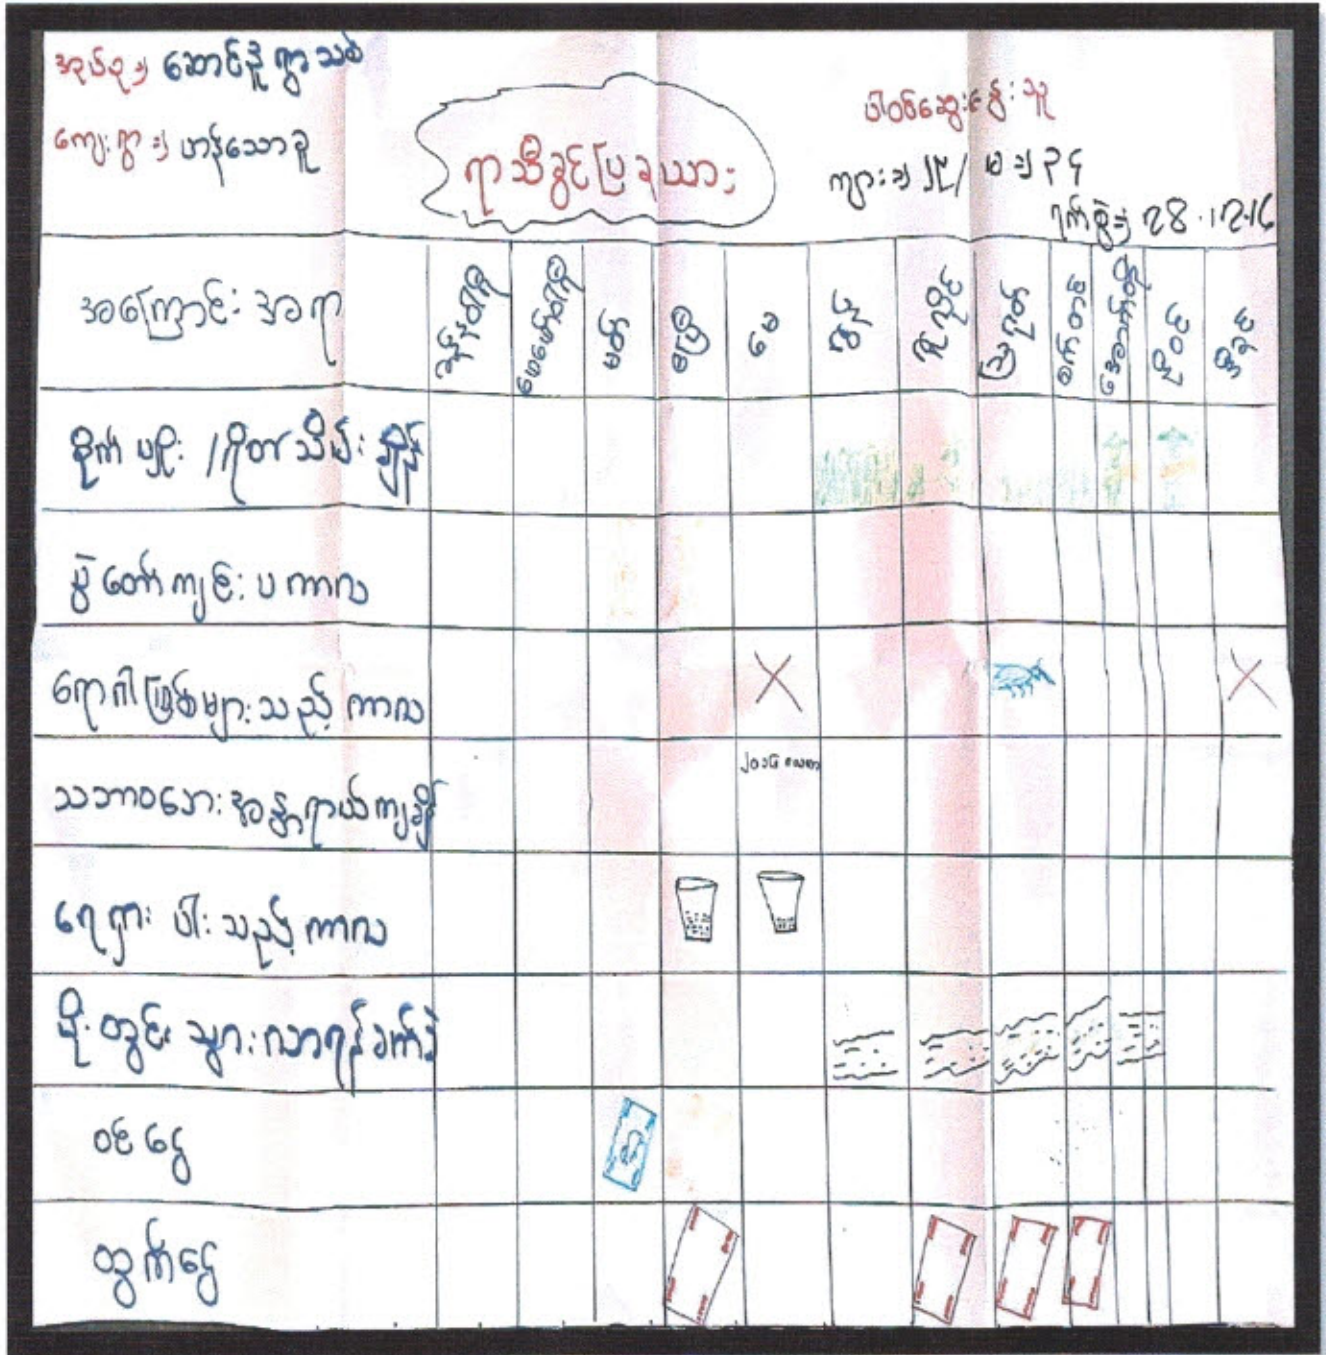 အုပ်စု း၊ ဆောင်ဒူ ရွာသစ်
ကျေးရွာ း၊ ဟန်သောခူ
ရာသီခွင်ပြ ဇယား
ပါဝင်ဆွေးနွေးသူ
ကျား း၊ ၂၉/ မ း၊ ၃၄
ရက်စွဲ း၊ 28.12.16
အကြောင်းအရာ
ဇန်နဝါရီ
ဖေဖော်ဝါရီ
မတ်
ဧပြီ
မေ
ဇွန်
ဇူလိုင်
ဩဂုတ်
စက်တင်
အောက်တို
နိုဝင်
ဒီဇင်
စိုက်ပျိုး / ရိတ်သိမ်းချိန်
ပွဲတော်ကျင်းပကာလ
ရောဂါဖြစ်များသည့်ကာလ
သဘာဝဘေးအန္တရာယ်ကျချိန်
ရေရှားပါးသည့်ကာလ
မိုးတွင်းသွားလာရန်ခက်ခဲ
ဝင်ငွေ
ထွက်ငွေ